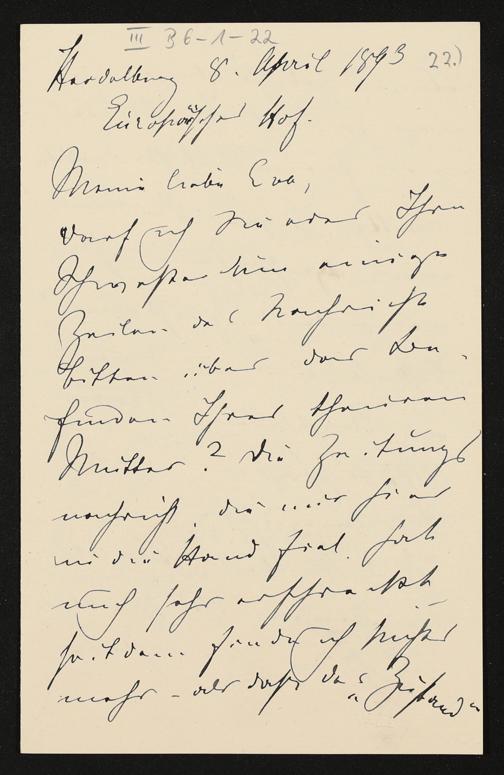 III B 6-1-22
22.)
Heidelberg 8. April 1893
Europäischer Hof.
Meine liebe Eva,
darf ich Sie oder Ihre
Schwestern um einige
Zeilen der Nachricht
bitten über das Be-
finden Ihrer theuren
Mutter? Die Zeitungs
nachricht, die mir hier
in die Hand fiel, hat
mich sehr erschreckt
seitdem finde ich nichts
mehr - als daß der „Zustand"